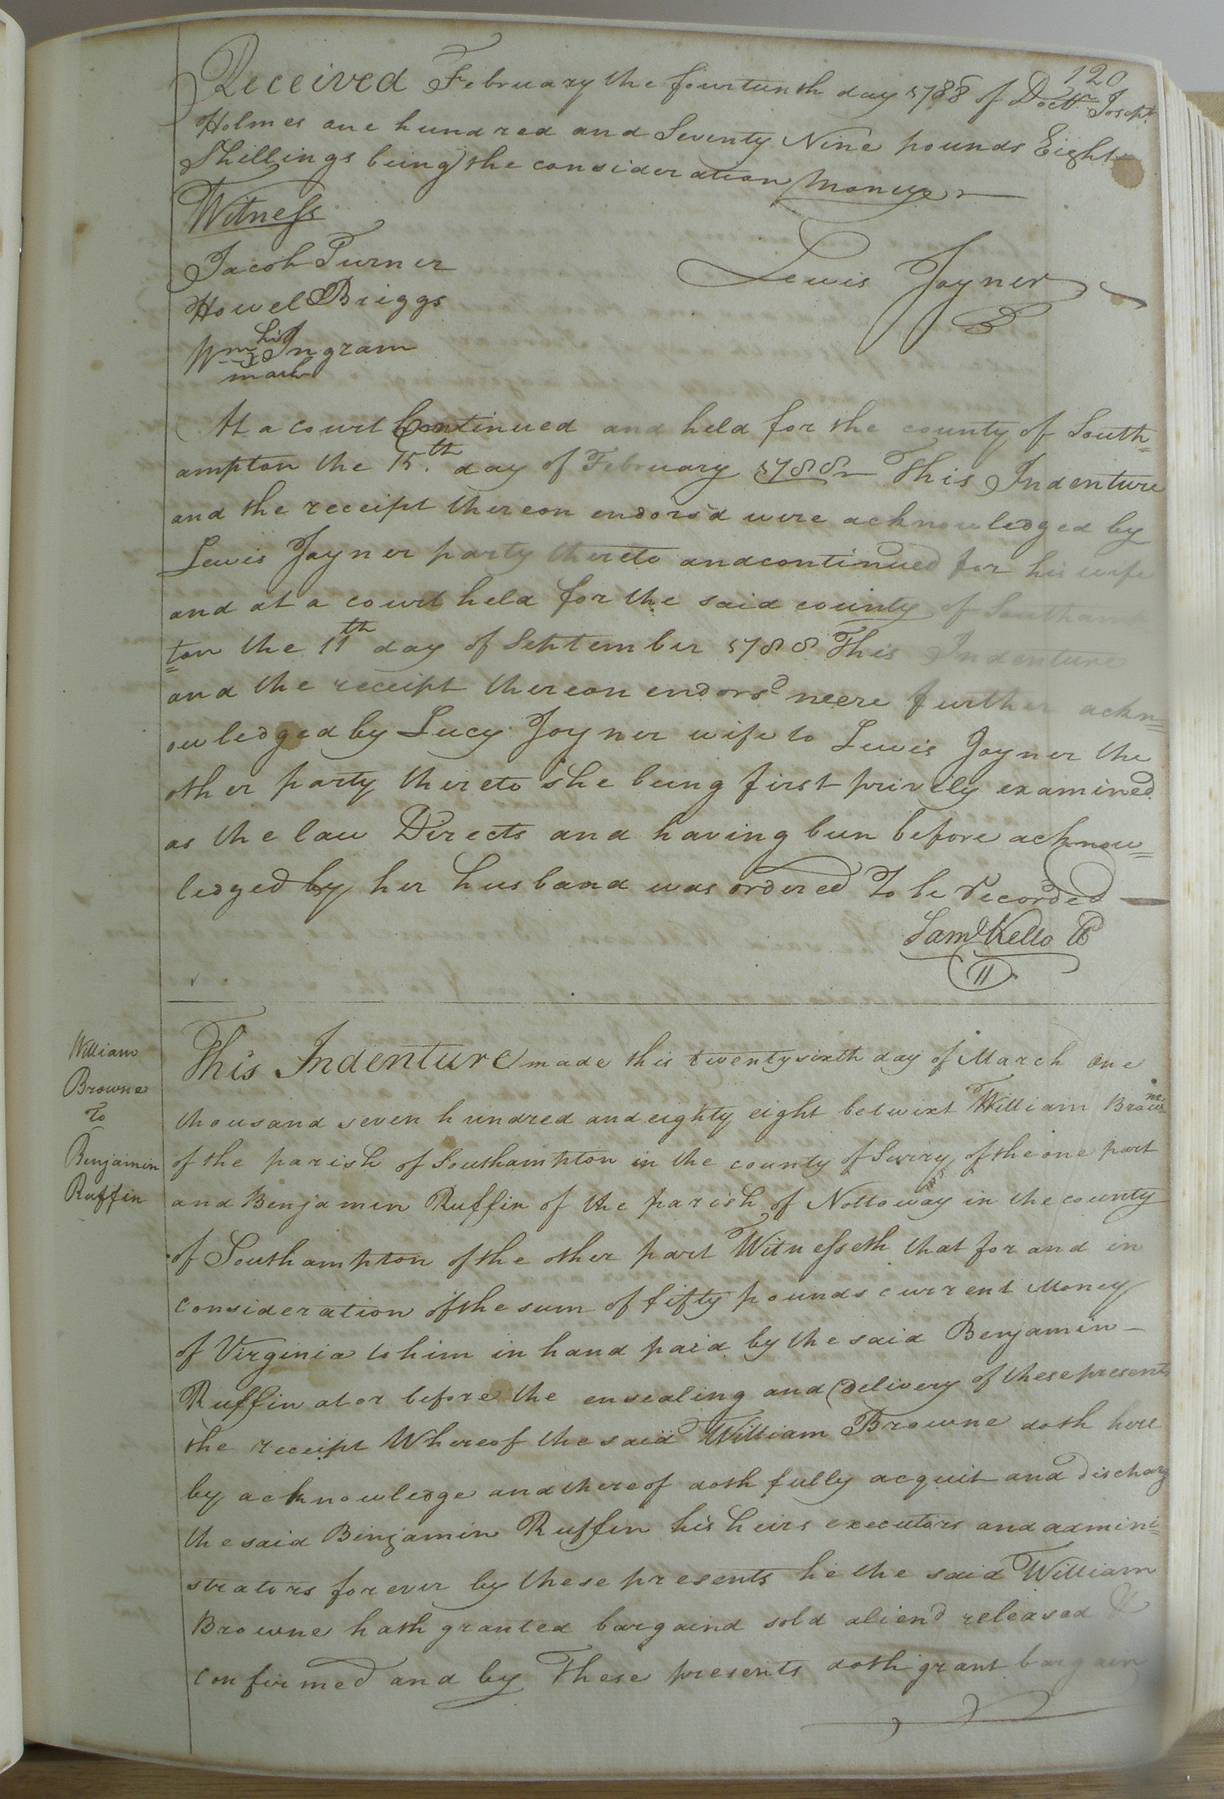 120
Received February the fourtunth day 1788 of Doctr. Joseph
Holmes one hundred and Seventy Nine pounds Eight
Shillings being the consideration Moneye
Witness
Jacob Turner
Howel Briggs
Lewis Joyner
his
Wm I Ingram
mark
At a court Continued and held for the county of South=
ampton the 15.th day of February 1788 This Indenture
and the receipt thereon endors'd were acknowledged by
Lewis Joyner party thereto and continued for his wife
and at a court held for the said county of Southamp
=ton the 11th day of September 1788 This Indenture
and the receipt thereon endorsd were further ackn=
owledged by Lucy Joyner wife to Lewis Joyner the
other party thereto she being first privily examined
as the law Directs and having bun before acknow=
ledged by her husband was ordered To be recorded
Saml Kello
This Indenture made this twentysixth day of March one
William
Browne
To
Benjamin
Ruffin
thousand seven hundred and eighty eight betwixt William Browne
of the parish of Southampton in the county of Surry of the one part
and Benjamin Ruffin of the parish of Nottoway in the county
of Southampton of the other part Witnesseth that for and in
consideration of the sum of fifty pounds current Money
of Virginia to him in hand paid by the said Benjamin
Ruffin at or before the ensealing and delivery of these presents
the receipt Whereof the said William Browne doth here
by acknowledge and thereof doth fully acquit and discharg
the said Benjamin Ruffin his heirs executors and admini=
strators for ever by these presents he the said William
Browne hath granted bargaind sold aliend released &
confirmed and by These presents doth grant bargain